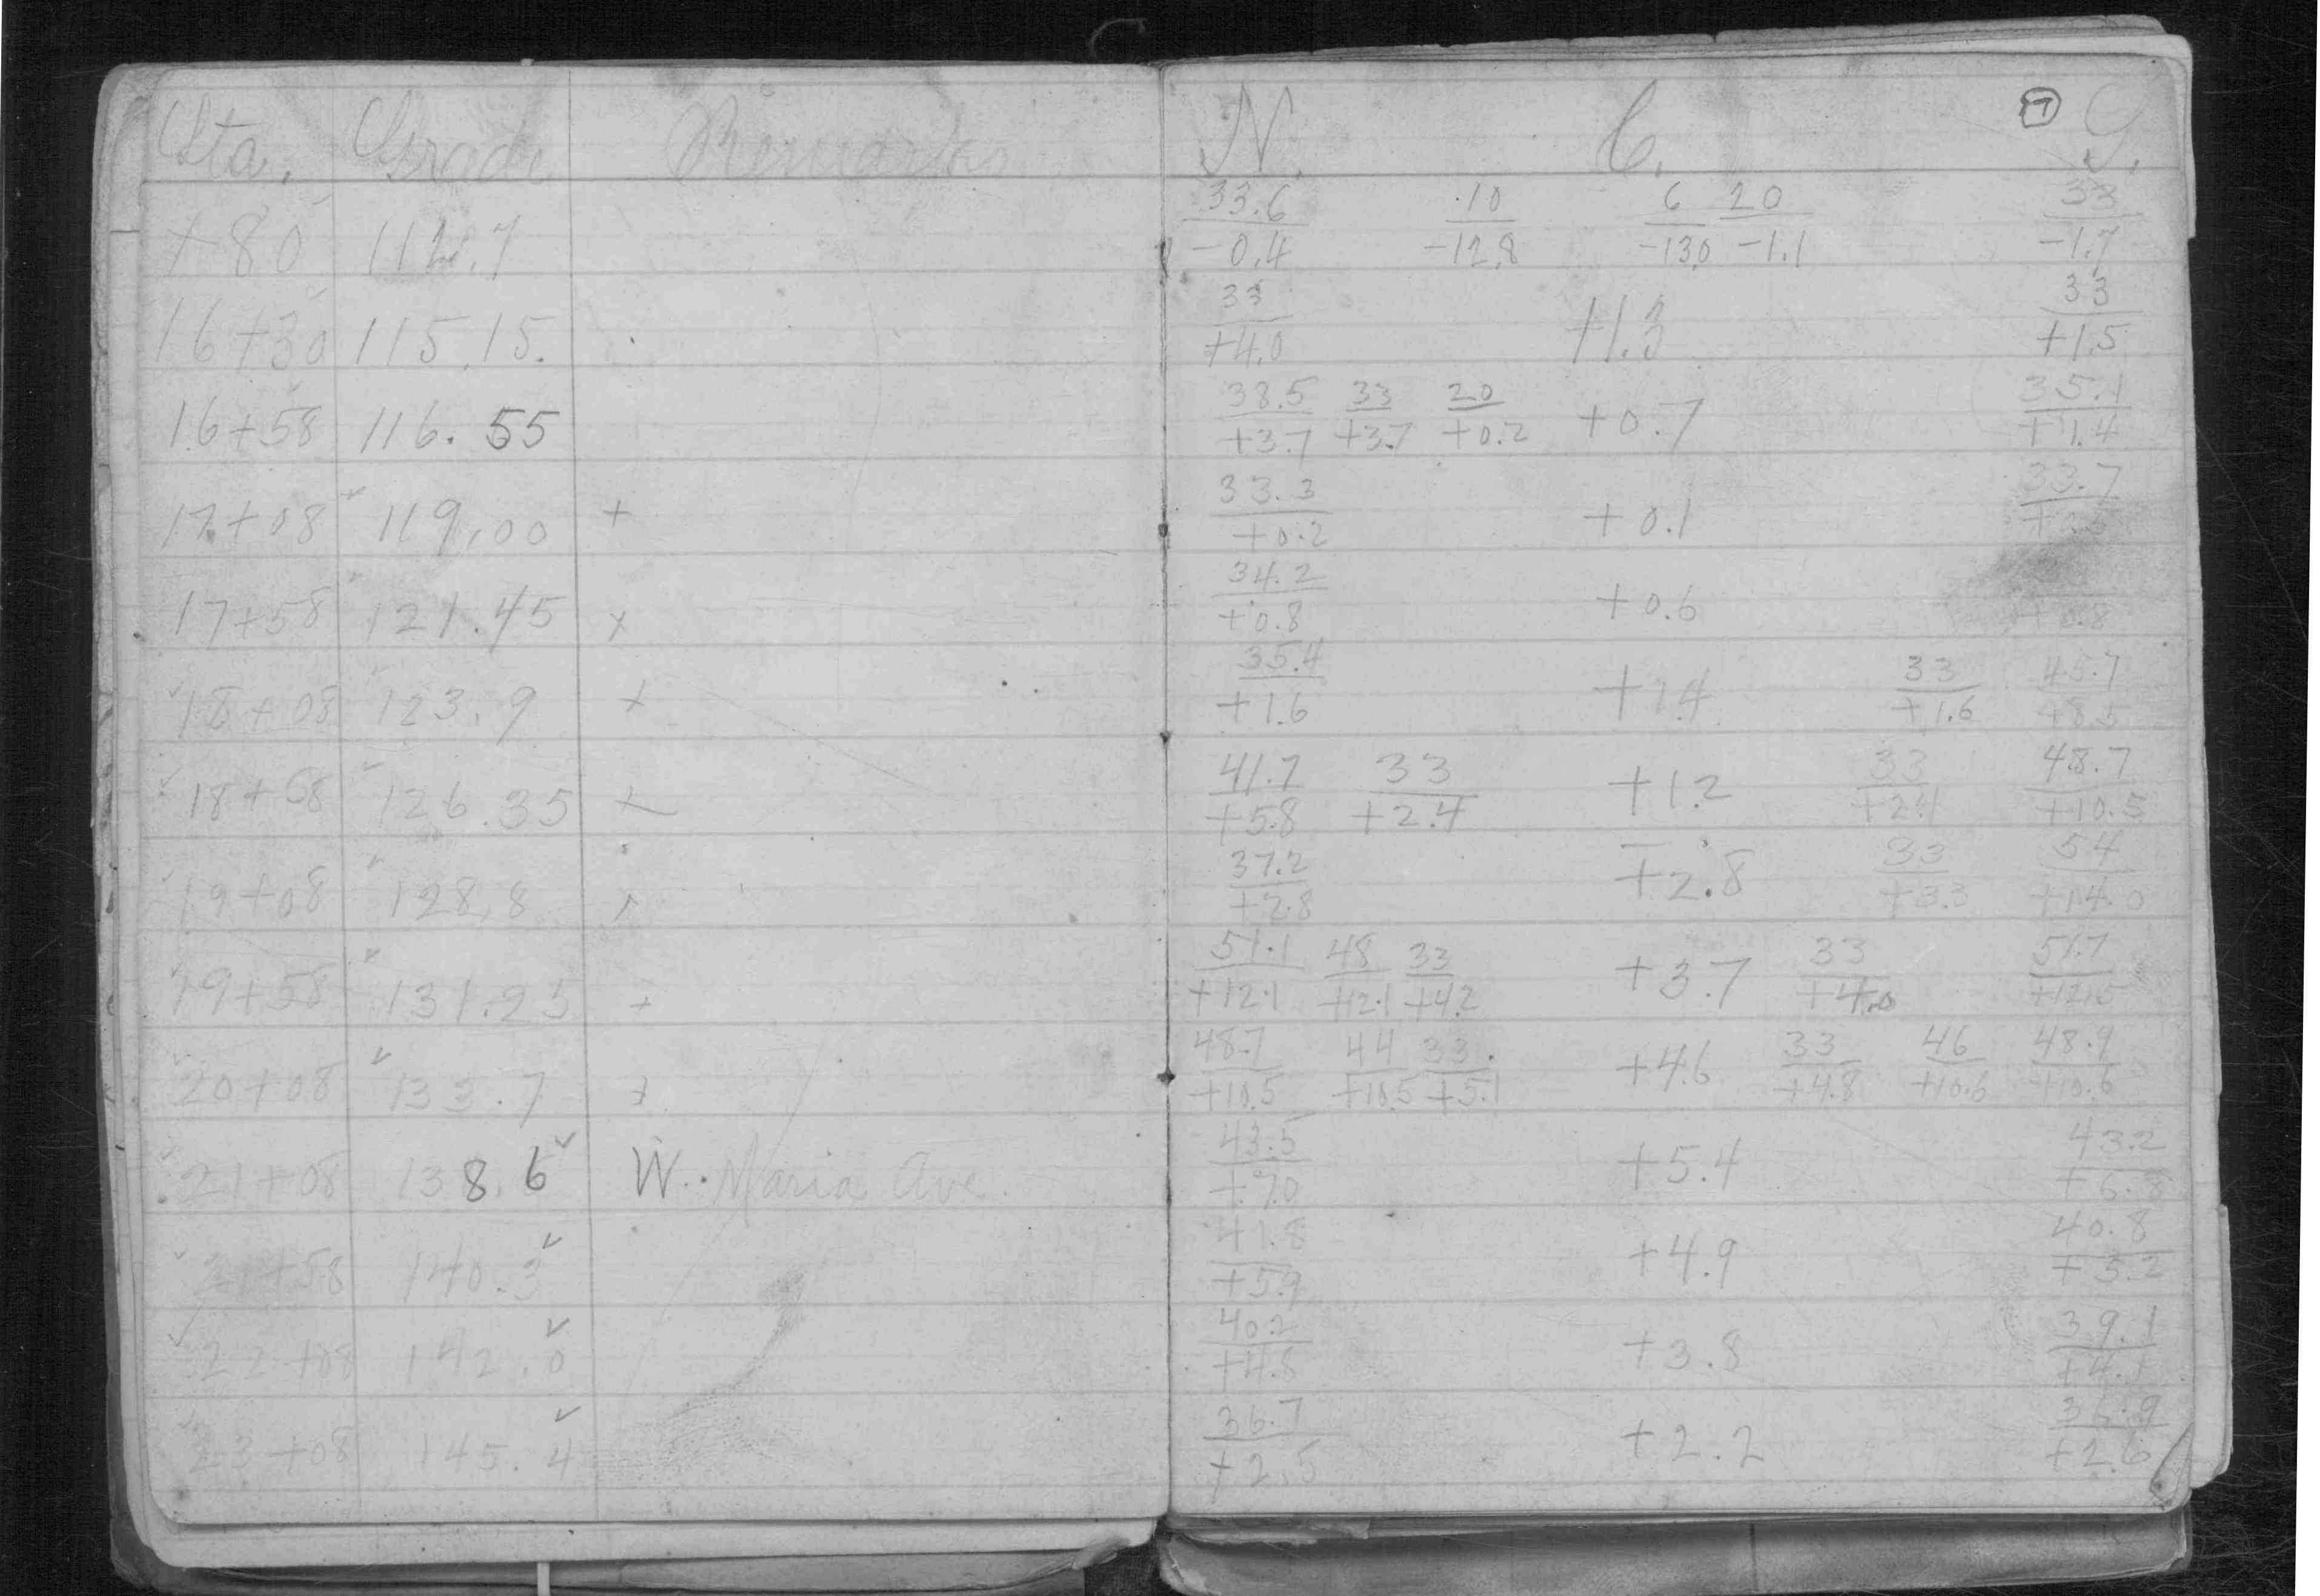 Sta. Grade Remarks N. C. 7 S.
33.6 10 6 20 33
+80 112.7 -0.4 -12.8 -13.0 -1.1 -1.7
33 33
16+30 115.15. +4.0 +1.3 +1.5
38.5 33 20 35.1
16+58 116.55 +3.7 +3.7 +0.2 +0.7 +1.4
33.3 33.7
17+08 119.00 + +0.2 +0.1
34.2
17+58 121.45 x +0.8 +0.6 +0.8
35.4 33 45.7
18+08 123.9 x +1.6 +1.4 +1.6 +8.5
41.7 33 33 48.7
18+58 126.35 + +5.8 +2.4 +1.2 +2.1 +10.5
37.2 33 54
19+08 128.8 +2.8 +2.8 +3.3 +14.0
51.1 48 33 33 51.7
19+58 131.25 + +12.1 +12.1 +4.2 +3.7 +4.0 +12.5
48.7 44 33 33 46 48.9
20+08 133.7 + +10.5 +10.5 +5.1 +4.6 +4.8 +10.6 +10.6
43.5 43.2
21+08 138.6 W. Maria Ave. +7.0 +5.4
41.8 40.8
21+58 140.3 +5.9 +4.9 +5.2
40.2 39.1
22+08 142.0 +4.8 +3.8 +4.1
36.7 36.9
23+08 145.4 +2.5 +2.2 +2.6